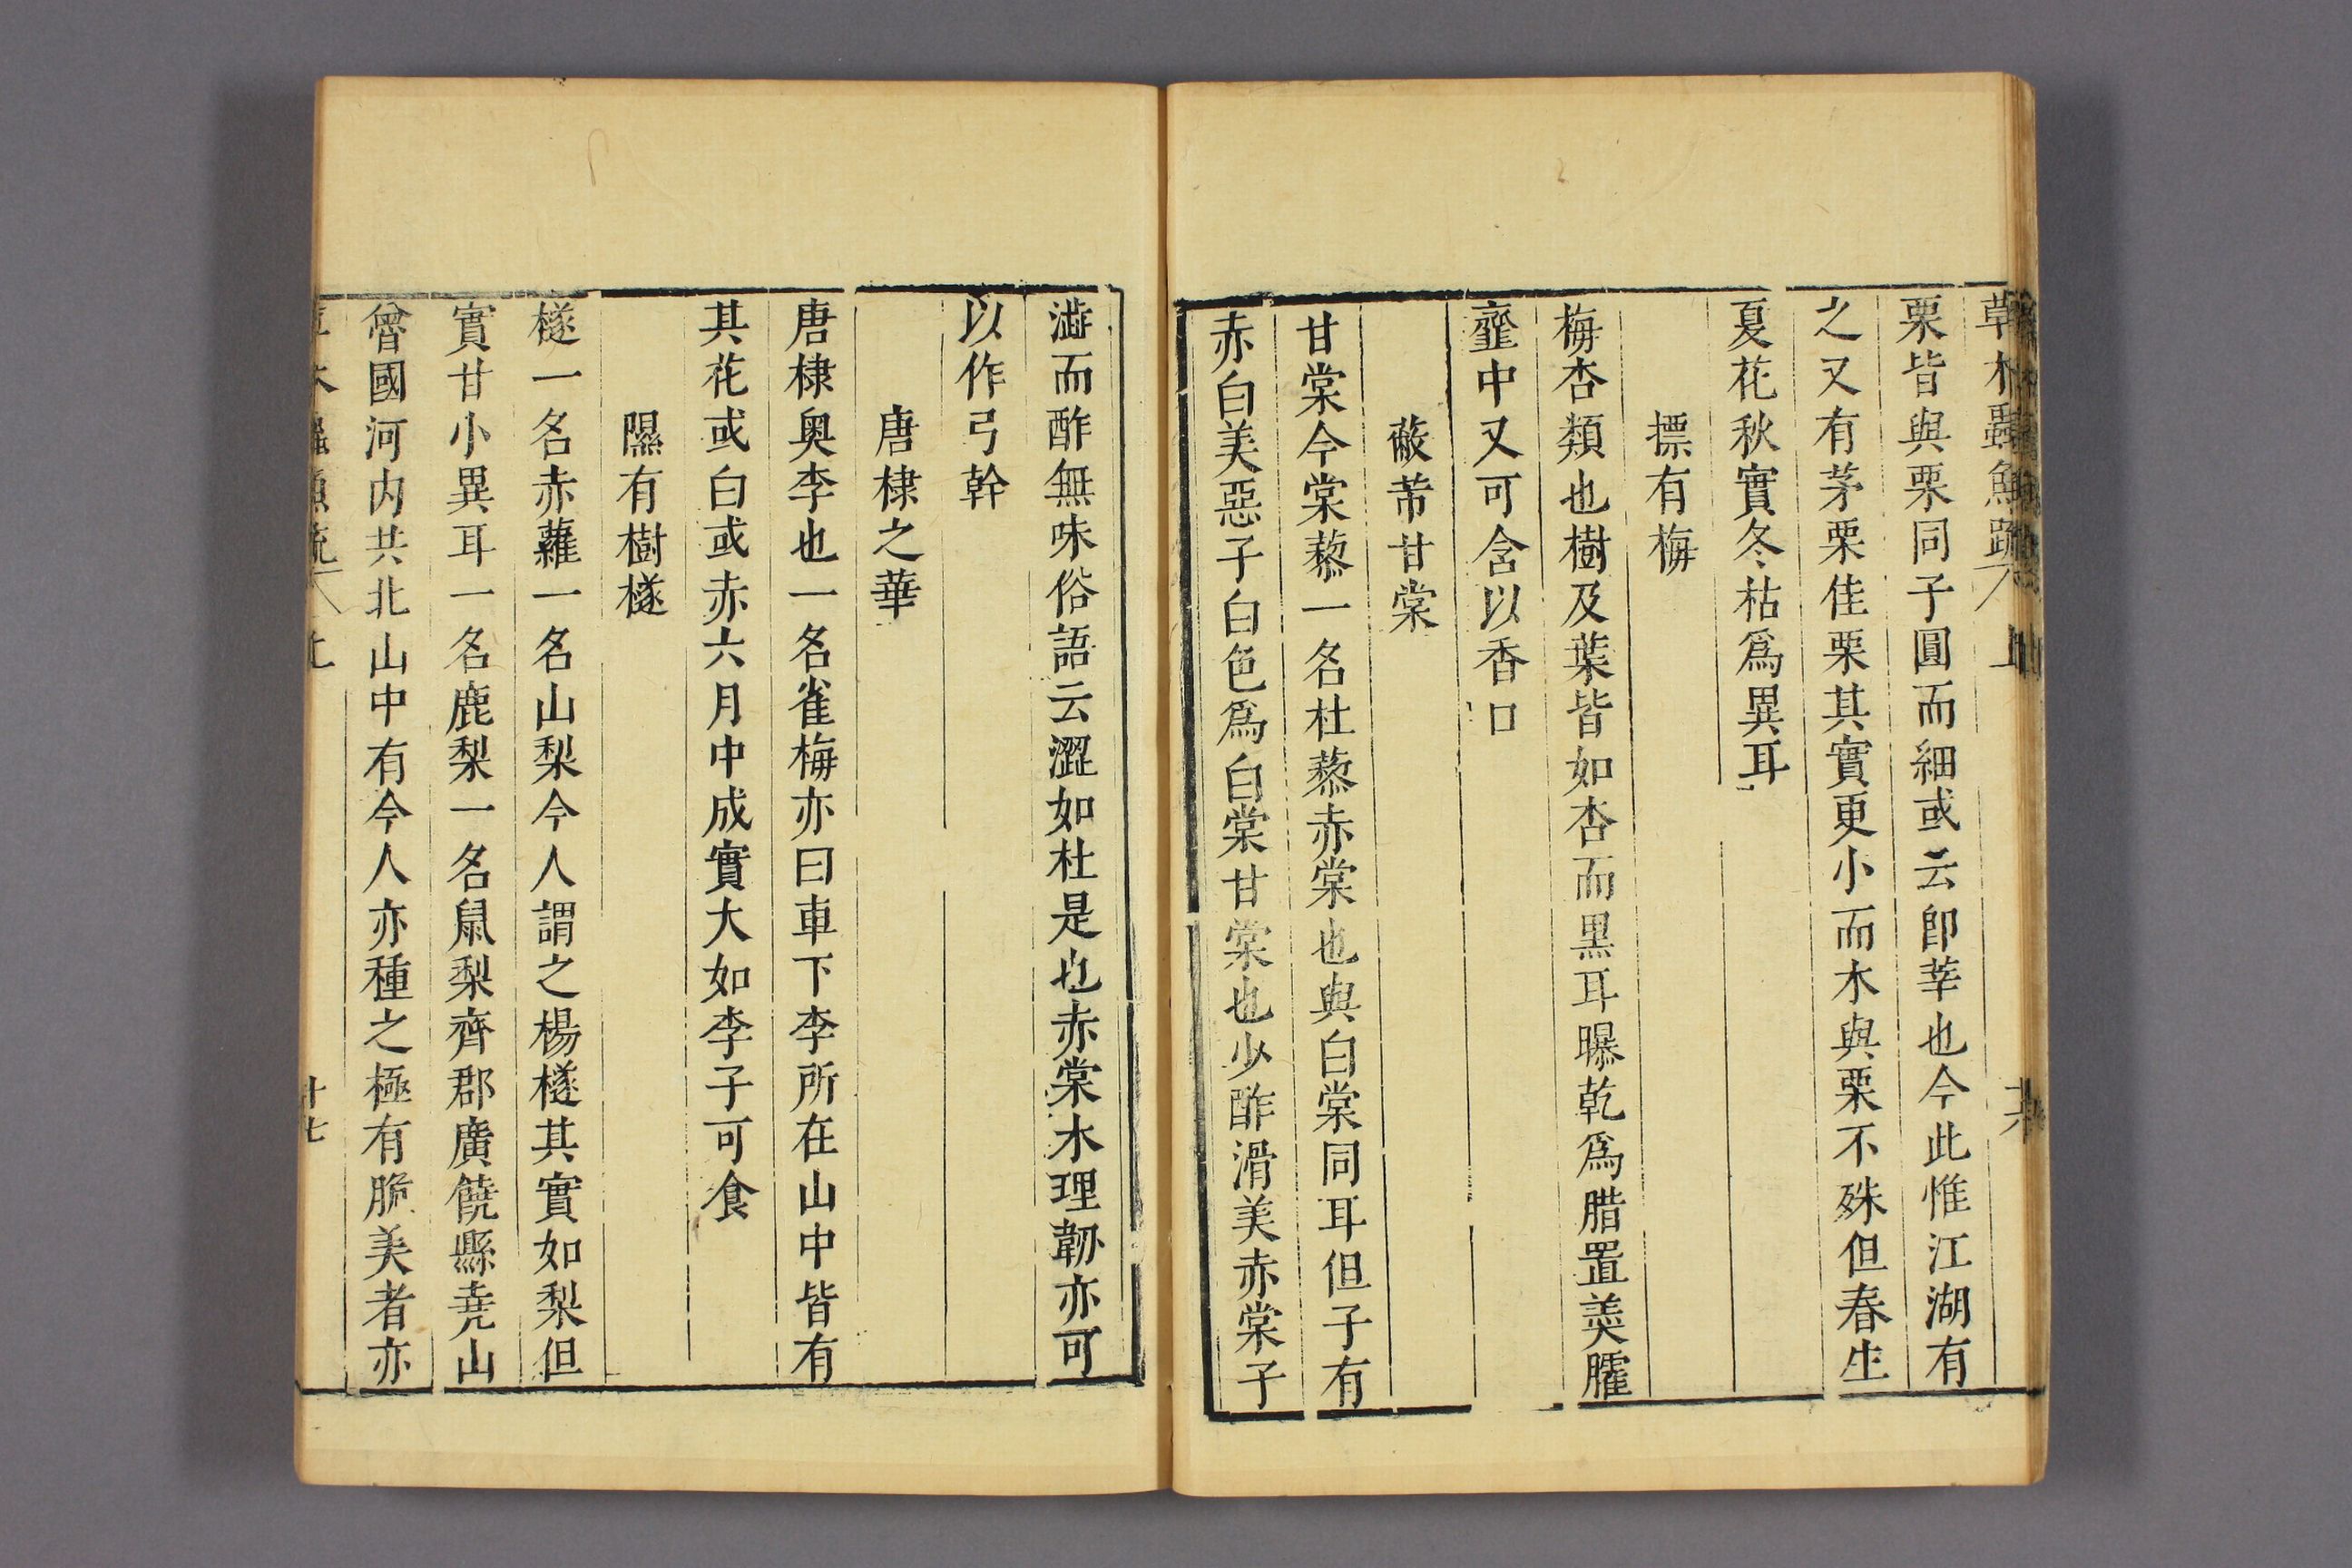 草木蟲魚疏 上 廿六
栗皆與栗同子圓而細或云卽莘也今此惟江湖有
之又有茅栗佳栗其實更小而木與栗不殊但春生
夏花秋實冬枯爲異耳
摽有梅
梅杏類也樹及葉皆如杏而黒耳曝乾爲腊置羮臛
虀中又可含以香口
蔽芾甘棠
甘棠今棠藜一名杜藜赤棠也與白棠同耳但子有
赤白美惡子白色爲白棠甘棠也少酢滑美赤棠子
澁而酢無味俗語云澀如杜是也赤棠木理韌亦可
以作弓幹
唐棣之華
唐棣奥李也一名雀梅亦曰車下李所在山中皆有
其花或白或赤六月中成實大如李子可食
隰有樹檖
檖一名赤蘿一名山梨今人謂之楊檖其實如梨但
實甘小異耳一名鹿梨一名鼠梨齊郡廣饒縣堯山
曾國河内共北山中有今人亦種之極有脆美者亦
草木蟲魚疏 上 廿七